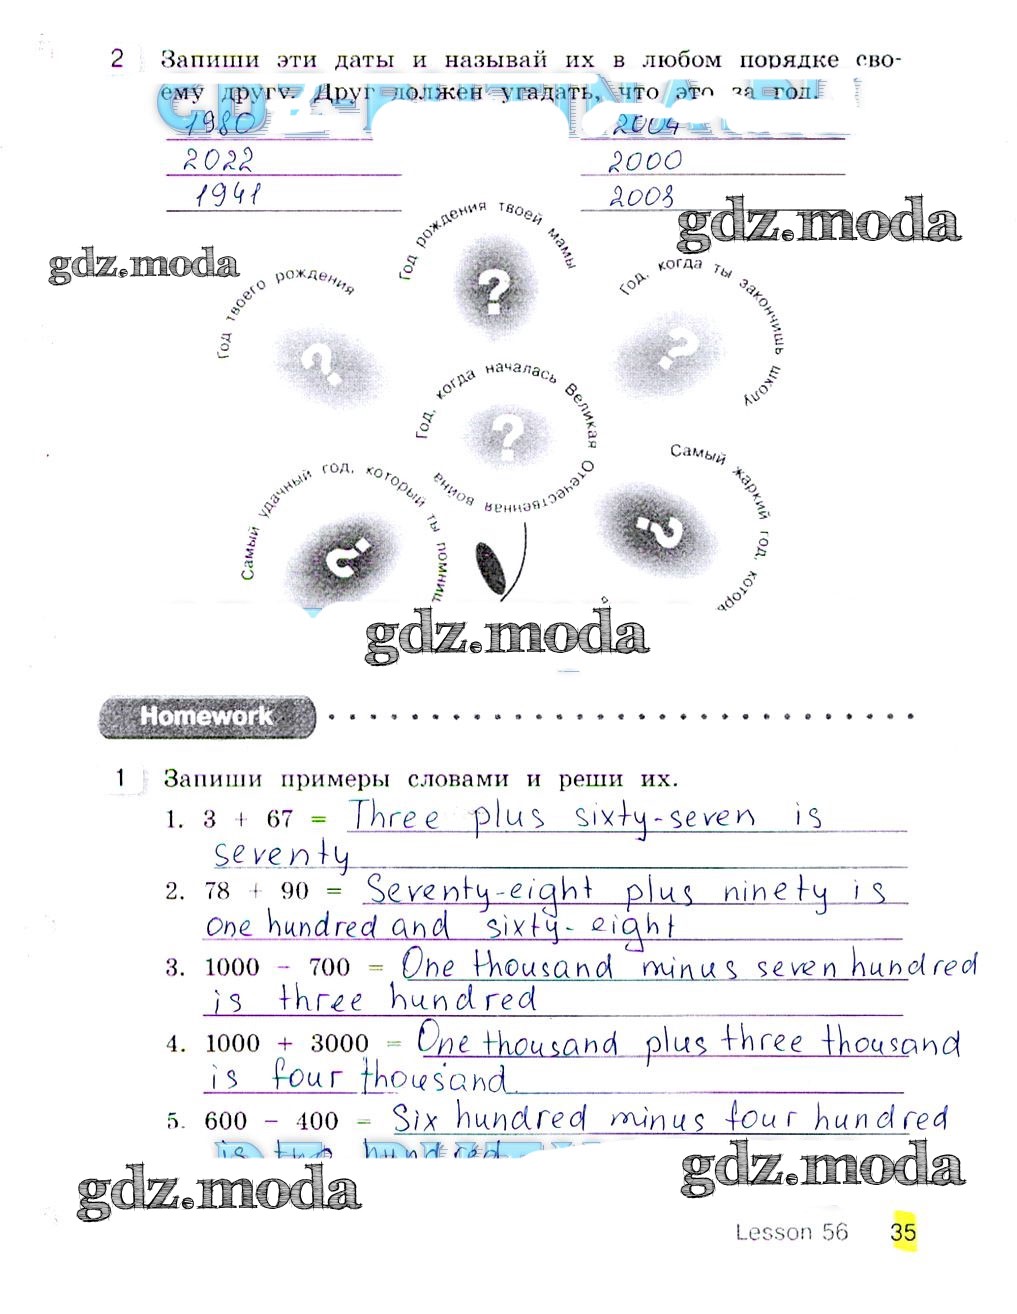 2 Запиши эти даты и называй их в любом порядке сво-
ему другу. Друг должен угадать, что это за год.
1980 2004
2022 2000
1941 2003
gdz.moda
gdz.moda
Год рождения твоей мамы
?
Год твоего рождения
?
Год, когда ты закончишь школу
?
Год, когда началась Великая Отечественная война
?
Самый удачный год, который ты помниш
?
Самый жаркий год, которы
?
gdz.moda
Homework
1 Запиши примеры словами и реши их.
1. 3 + 67 = Three plus sixty-seven is
seventy
2. 78 + 90 = Seventy-eight plus ninety is
one hundred and sixty-eight
3. 1000 − 700 = One thousand minus seven hundred
is three hundred
4. 1000 + 3000 = One thousand plus three thousand
is four thousand
5. 600 − 400 = Six hundred minus four hundred
is two hundred
gdz.moda
gdz.moda
Lesson 56 35